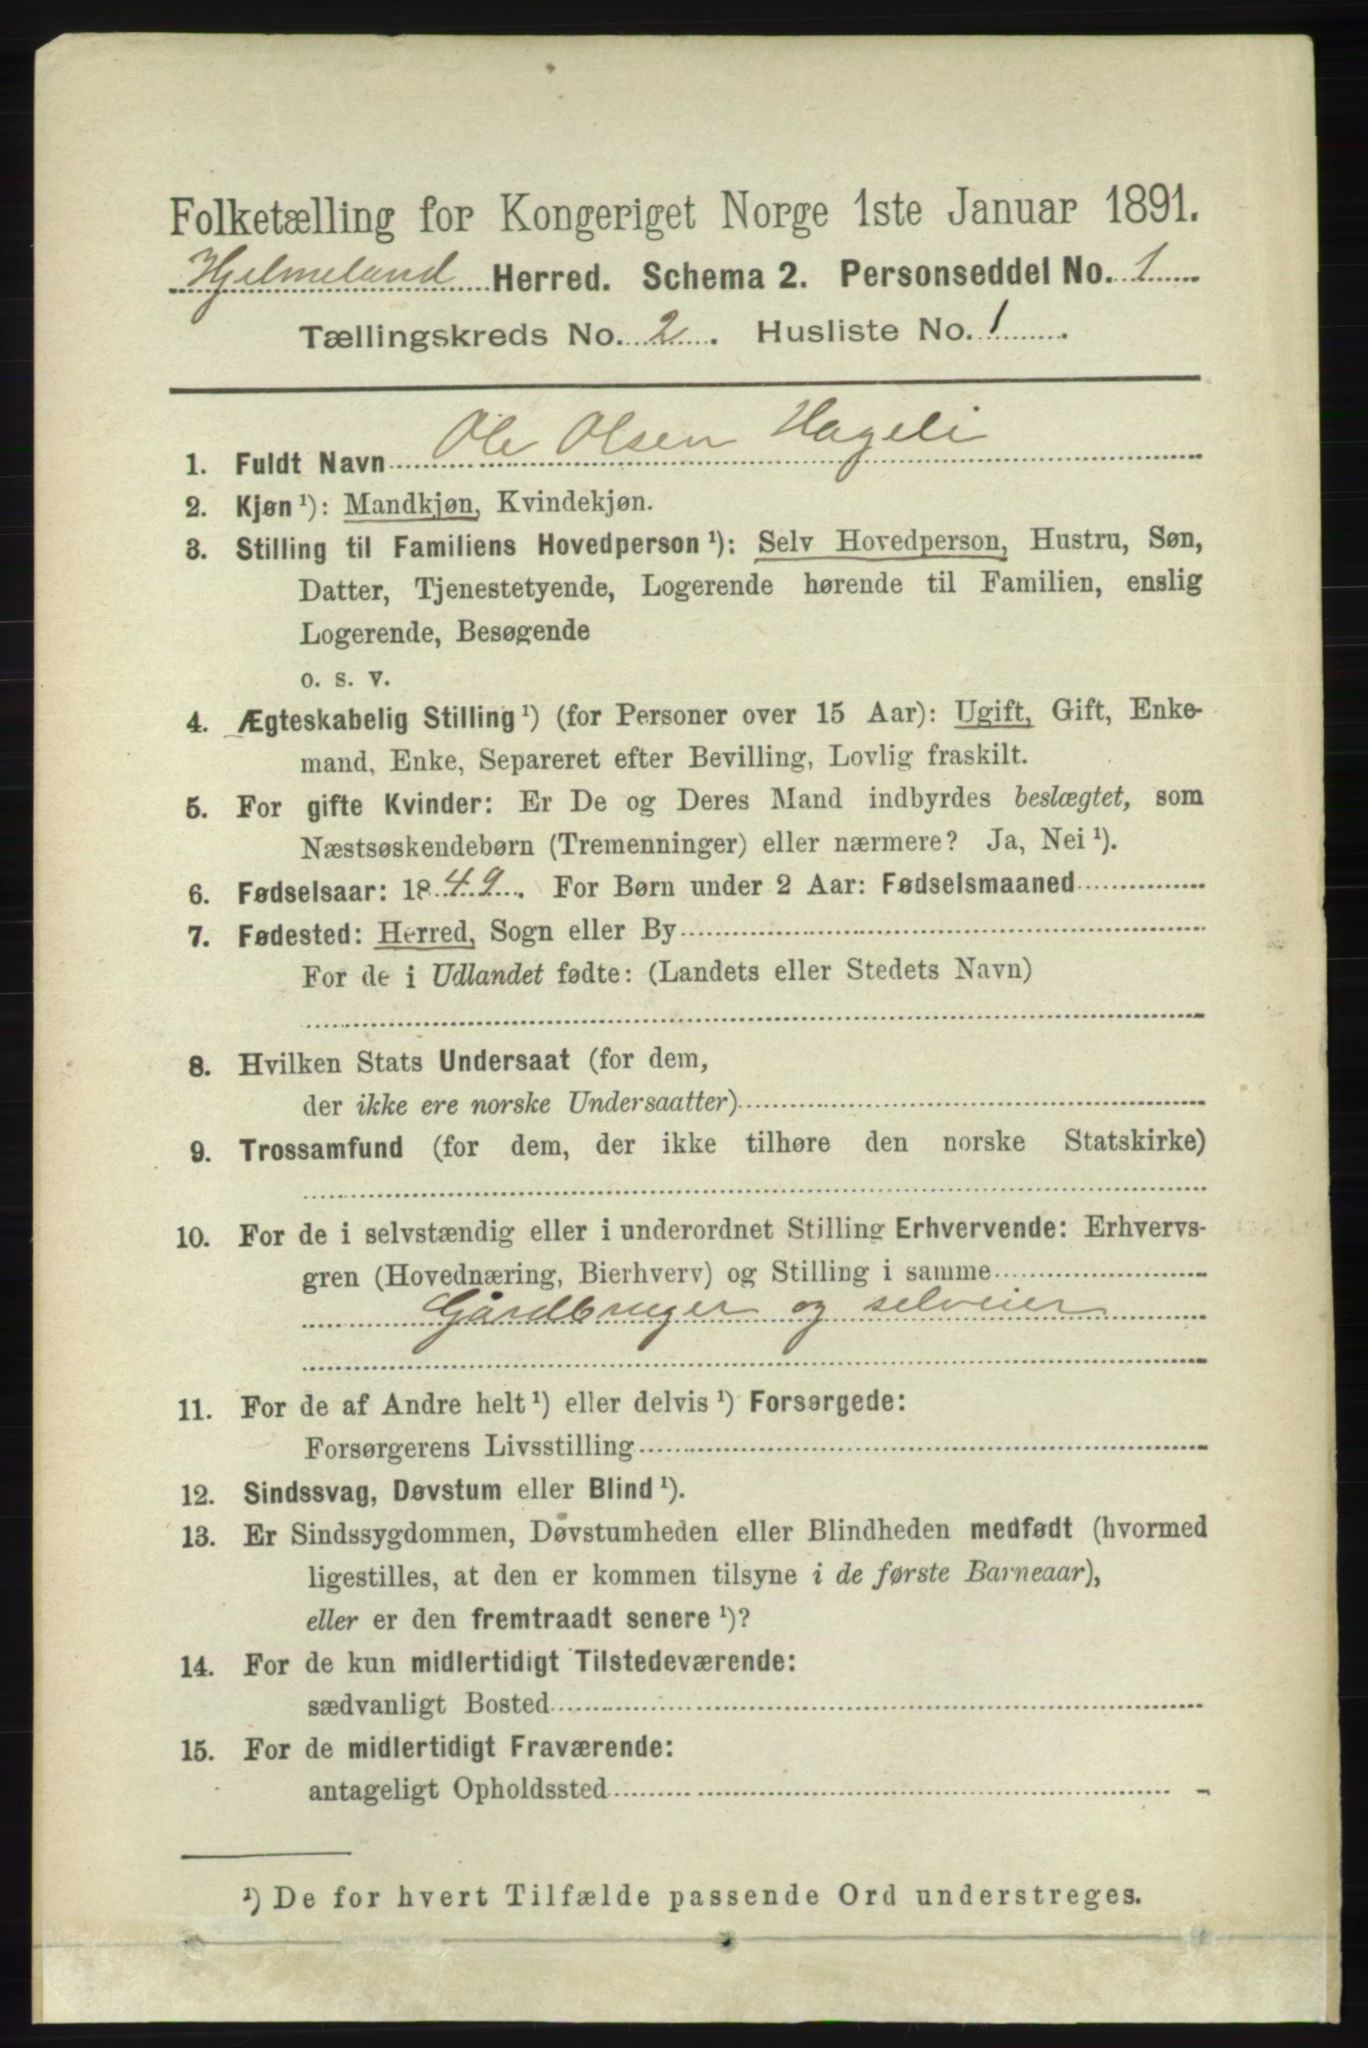 Folketælling for Kongeriget Norge 1ste Januar 1891.
Hjelmeland Herred. Schema 2. Personseddel No. 1
Tællingskreds No. 2. Husliste No. 1.
1. Fuldt Navn Ole Olsen Hageli
2. Kjøn ¹): Mandkjøn, Kvindekjøn.
3. Stilling til Familiens Hovedperson ¹): Selv Hovedperson, Hustru, Søn,
Datter, Tjenestetyende, Logerende hørende til Familien, enslig
Logerende, Besøgende
o. s. v.
4. Ægteskabelig Stilling ¹) (for Personer over 15 Aar): Ugift, Gift, Enke-
mand, Enke, Separeret efter Bevilling, Lovlig fraskilt.
5. For gifte Kvinder: Er De og Deres Mand indbyrdes beslægtet, som
Næstsøskendebørn (Tremenninger) eller nærmere? Ja, Nei ¹).
6. Fødselsaar: 1849. For Børn under 2 Aar: Fødselsmaaned
7. Fødested: Herred, Sogn eller By
For de i Udlandet fødte: (Landets eller Stedets Navn)
8. Hvilken Stats Undersaat (for dem,
der ikke ere norske Undersaatter)
9. Trossamfund (for dem, der ikke tilhøre den norske Statskirke)
10. For de i selvstændig eller i underordnet Stilling Erhvervende: Erhvervs-
gren (Hovednæring, Bierhverv) og Stilling i samme
Gårdbruger og selveier
11. For de af Andre helt ¹) eller delvis ¹) Forsørgede:
Forsørgerens Livsstilling
12. Sindssvag, Døvstum eller Blind ¹).
13. Er Sindssygdommen, Døvstumheden eller Blindheden medfødt (hvormed
ligestilles, at den er kommen tilsyne i de første Barneaar),
eller er den fremtraadt senere ¹)?
14. For de kun midlertidigt Tilstedeværende:
sædvanligt Bosted
15. For de midlertidigt Fraværende:
antageligt Opholdssted
¹) De for hvert Tilfælde passende Ord understreges.